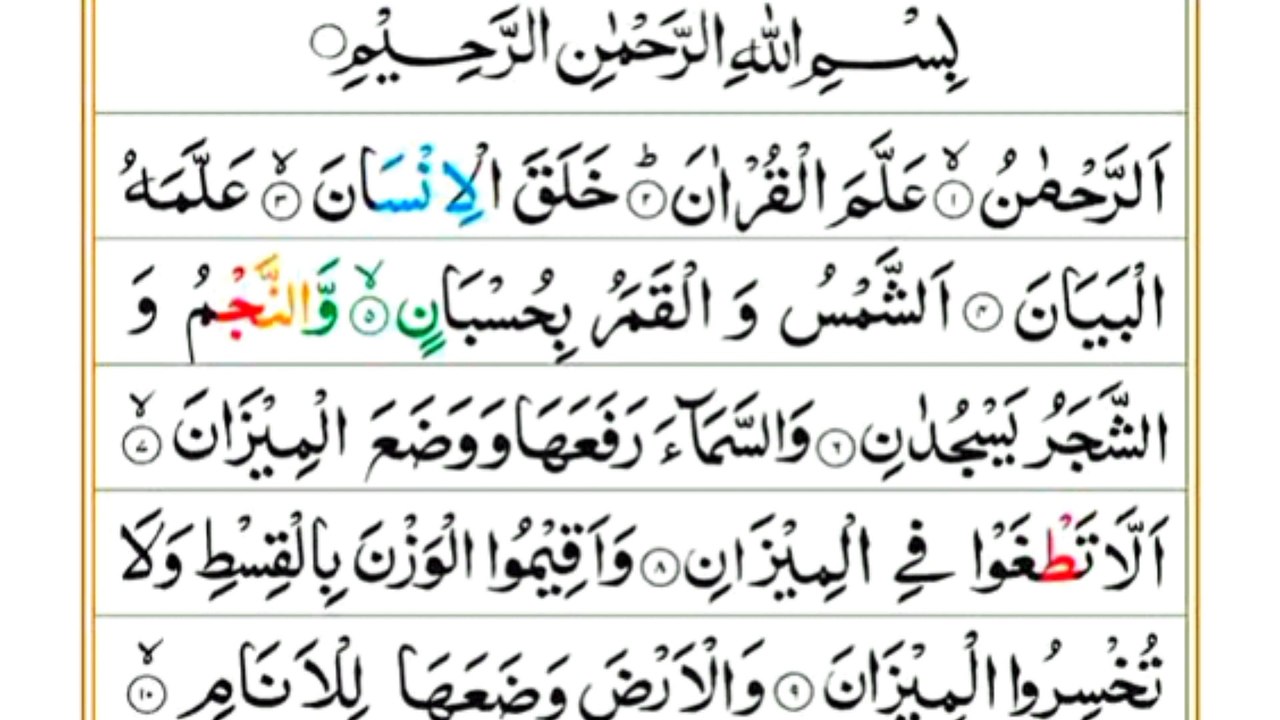 بِسْمِ اللّٰهِ الرَّحْمٰنِ الرَّحِيْمِ
اَلرَّحْمٰنُ ۙ﴿۱﴾ عَلَّمَ الْقُرْاٰنَ ؕ﴿۲﴾ خَلَقَ الْاِنْسَانَ ۙ﴿۳﴾ عَلَّمَهُ
الْبَيَانَ ﴿۴﴾ اَلشَّمْسُ وَ الْقَمَرُ بِحُسْبَانٍ ۙ﴿۵﴾ وَّالنَّجْمُ وَ
الشَّجَرُ يَسْجُدٰنِ ﴿۶﴾ وَالسَّمَآءَ رَفَعَهَا وَوَضَعَ الْمِيْزَانَ ۙ﴿۷﴾
اَلَّا تَطْغَوْا فِي الْمِيْزَانِ ﴿۸﴾ وَاَقِيْمُوا الْوَزْنَ بِالْقِسْطِ وَلَا
تُخْسِرُوا الْمِيْزَانَ ﴿۹﴾ وَالْاَرْضَ وَضَعَهَا لِلْاَنَامِ ۙ﴿۱۰﴾